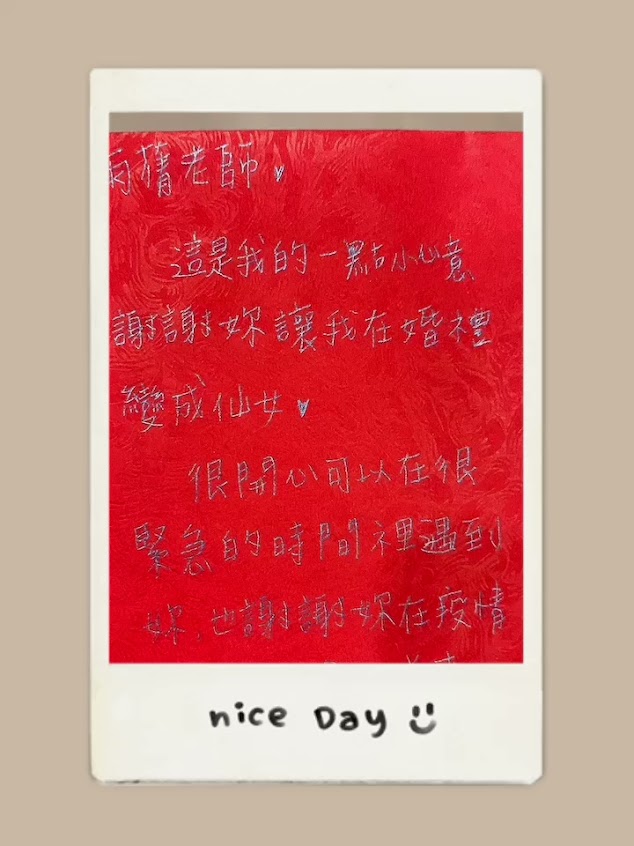 老師♥
這是我的一點小心意
謝謝妳讓我在婚禮
變成仙女♥
很開心可以在很
緊急的時間裡遇到
妳,也謝謝妳在疫情
nice Day